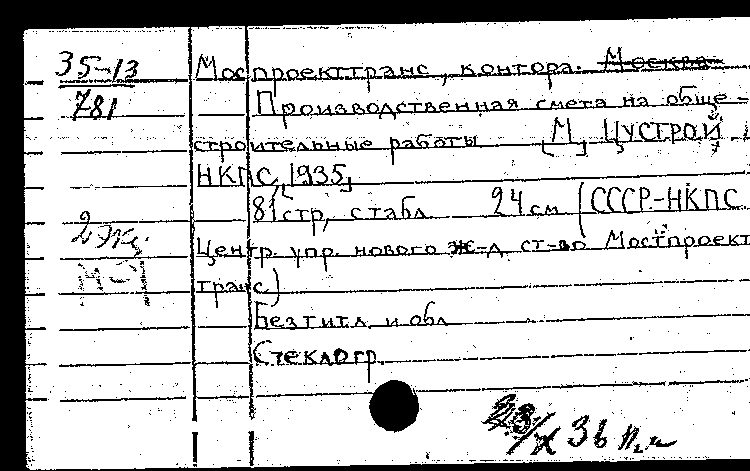 35-13
781
Моспроекттранс, контора. Москва
Производственная смета на обще-
строительные работы [М] ЦУСТРОЙ
НКПС, [1935]
81 стр, с табл 24 см (СССР-НКПС
2 экз.
Центр. упр. нового ж-д ст-во Мостпроект
транс)
Без тит. л. и обл
Стеклогр.
23/X 36